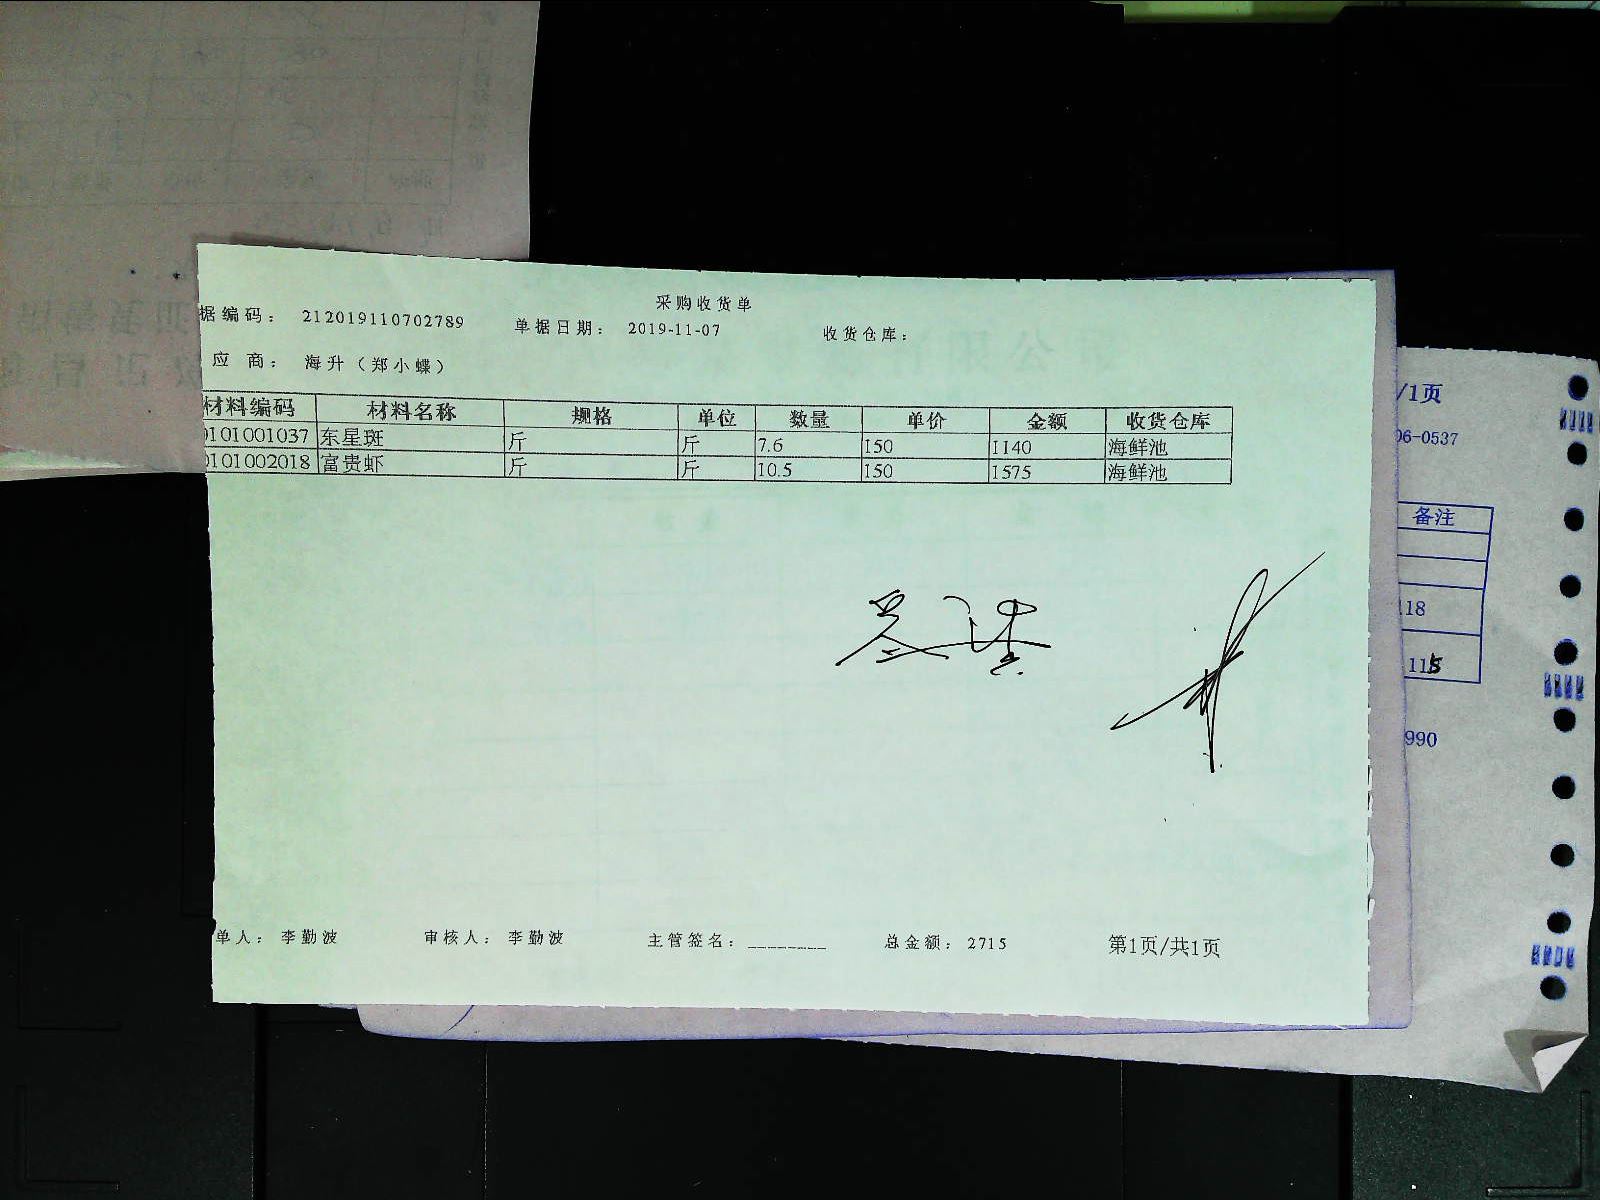 采购收货单
据编码: 212019110702789 单据日期: 2019-11-07 收货仓库:
应 商: 海升(郑小蝶)
材料编码 材料名称 规格 单位 数量 单价 金额 收货仓库
0101001037 东星斑 斤 斤 7.6 150 1140 海鲜池
0101002018 富贵虾 斤 斤 10.5 150 1575 海鲜池
单人: 李勤波 审核人: 李勤波 主管签名: ________ 总金额: 2715 第1页/共1页
/1页
06-0537
备注
118
115
990